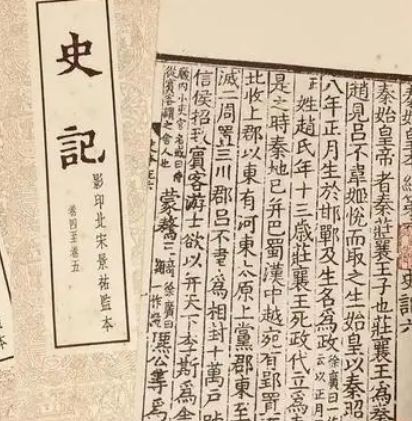 史記
影印北宋景祐監本
卷四至卷五
史記六
秦始皇帝者秦莊襄王子也莊襄王為秦
趙見呂不韋姬悅而取之生始皇以秦昭
八年正月生於邯鄲及生名為政徐廣曰一作正
姓趙氏年十三歲莊襄王死政代立為
是之時秦地已并巴蜀漢中越宛有郢置
北收上郡以東有河東太原上黨郡東至
滅二周置三川郡呂不韋為相封十萬戶
信侯招致賓客游士欲以并天下李斯為舍
從賓客謂之舍人也蒙驁王齮徐廣曰一作齕麃公等為